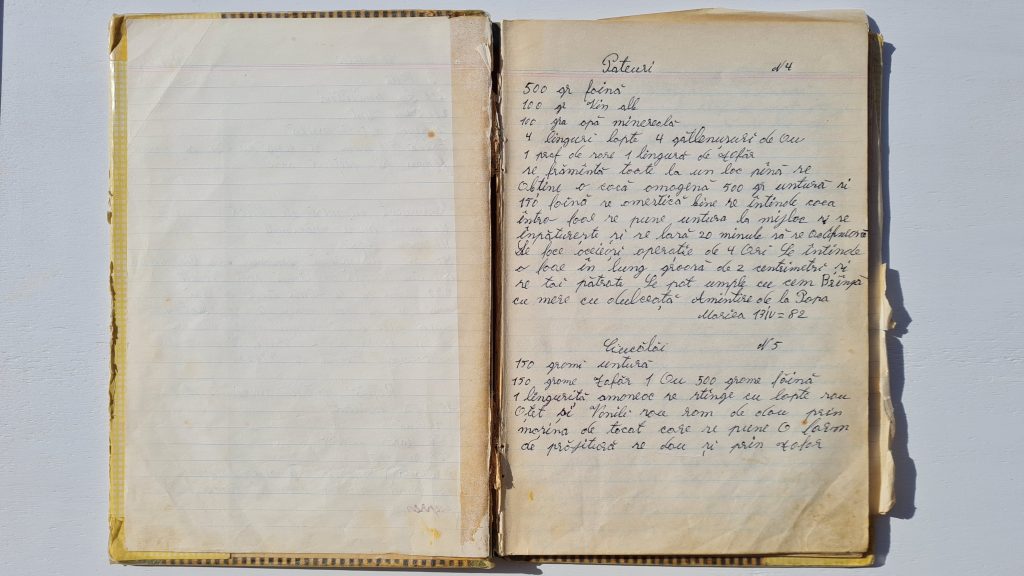 Pateuri N4
500 gr faină
100 gr Vin alb
100 gra apă minerala
4 linguri lapte 4 gălbenusuri de Ou
1 praf de sare 1 lingura de Zafăr
se frămîntă toate la un loc pînă se
Obtine o cocă omogenă 500 gr untură si
150 faină se amestică bine se intinde coca
intro foae se pune untura la mijloc și se
inpăturește și se lasă 20 minute să se
Se face aceiași operație de 4 Ori Se intinde
o foae în lung groasă de 2 centimitri și
se tai pătrate Se pot umple cu cern Brînză
cu mere cu dulceață Amintire de la Popa
Maricea 13/IV=82
N5
150 grami untură
150 grame Zafăr 1 Ou 500 grame făină
1 lingurită amoneac se stinge cu lapte sau
Otet și Vanili sau rom de dau prin
marina de tocat care se pune O
de prăjitură se dau și prin Zafar